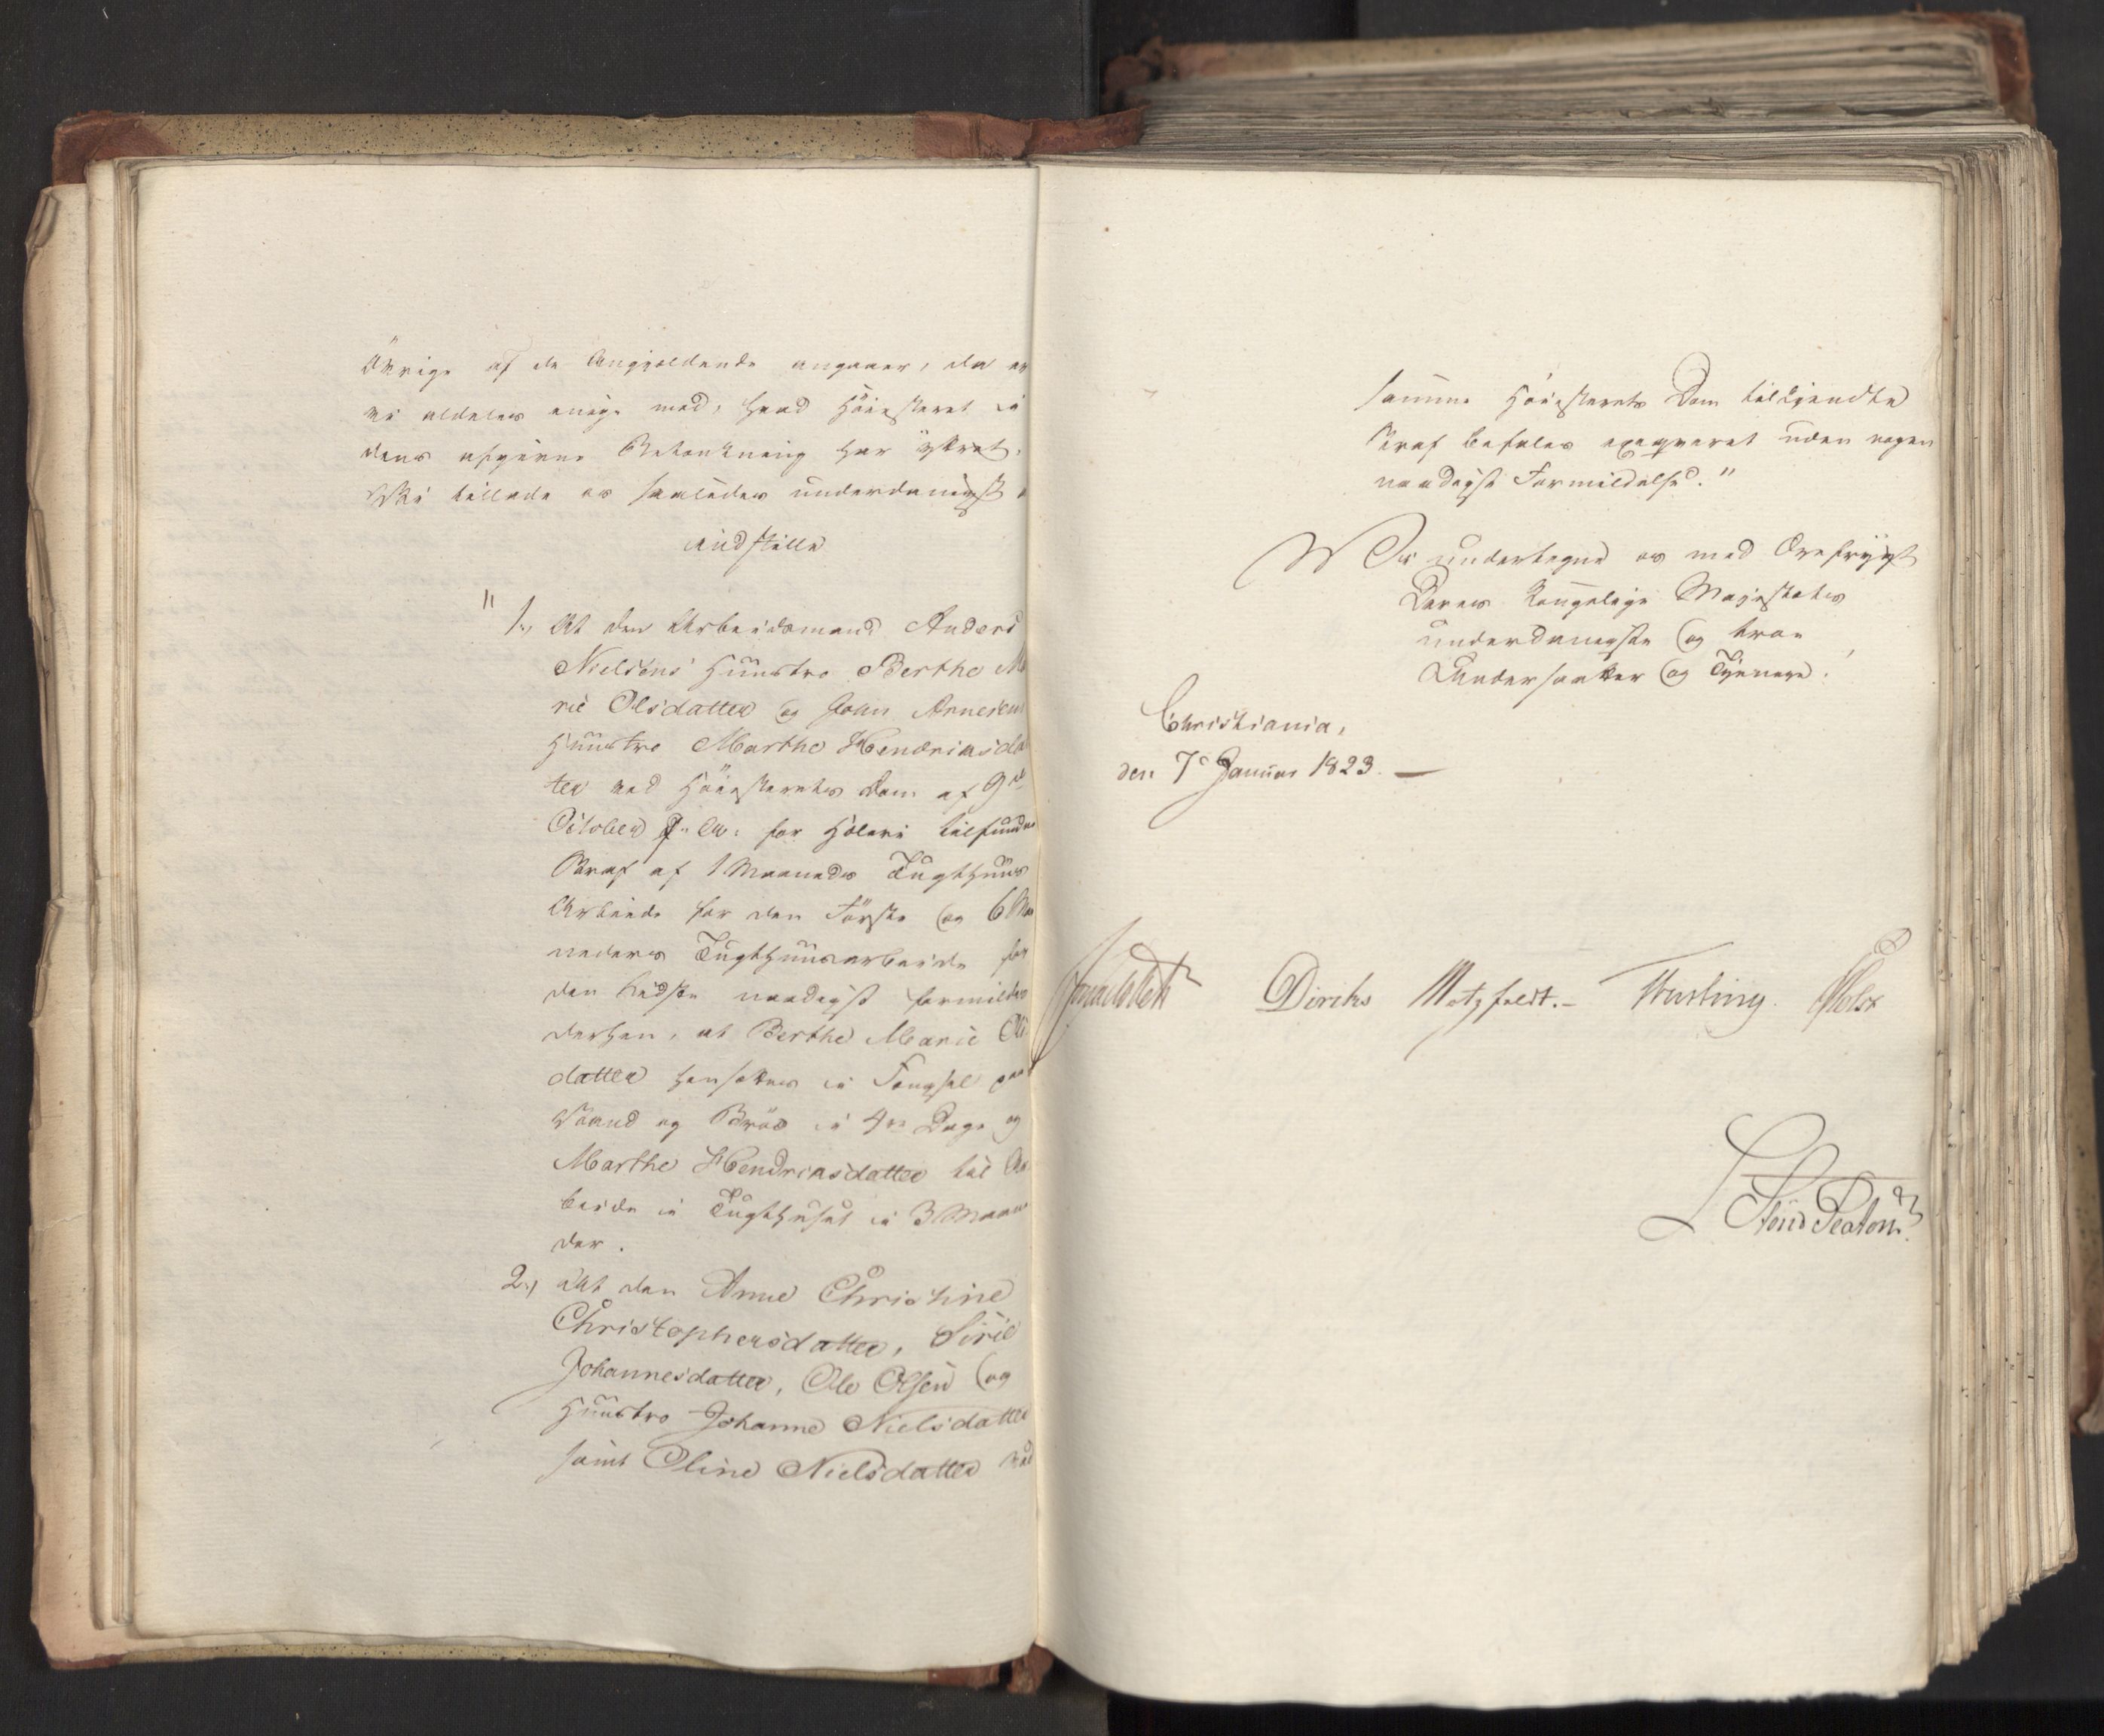 övrige af de Angjældende angaaer, da er
vi aldeles enige med, hvad Höiesteret i
dens afgivne Betænkning har yttret.
Vi tillade os saaledes underdanigst
indstille
" 1., At den Arbeidsmand Anders
Nielsens Huustro Berthe Ma
rie Olsdatter og John Arnesens
Huustro Marthe Hendriksdat
ter ved Höiesterets Dom af 9de
October f. A. for Hæleri tilfundne
Straf af 1 Maaneds Tugthuus
Arbeide for den Förste og 6 Maa
neders Tugthuusarbeide for
den Sidste naadigst formildes
derhen, at Berthe Marie Ols
datter hensættes i Fængsel paa
Vand og Bröd i 4re Dage og
Marthe Hendriksdatter til Ar
beide i Tugthuset i 3 Maane
der.
2., At den Anne Christine
Christophersdatter, Siri
Johannesdatter, Ole Olsen og
Huustro Johanne Nielsdatter
samt Oline Nielsdatter ved
samme Höiesterets Dom tilkjendte
Straf befales exeqveret uden nogen
naadigst Formildelse."
Vi undertegne os med Ærefrygt
Deres Kongelige Majestæts
underdanigste og troe
Undersaatter og Tjenere.
Christiania,
den 7de Januar 1823. —
Diriks Motzfeldt.- Krebs